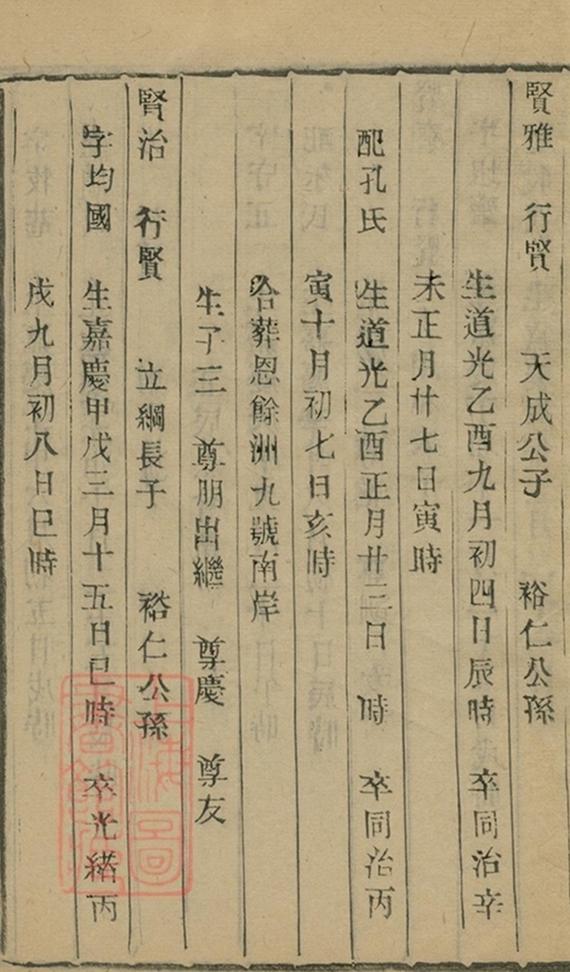 賢雅 行賢 天成公子 裕仁公孫
生道光乙酉九月初四日辰時 卒同治辛
未正月廿七日寅時
配孔氏 生道光乙酉正月廿三日 時 卒同治丙
寅十月初七日亥時
合葬恩餘洲九號南岸
生子三 尊朋出繼 尊慶 尊友
賢治 行賢 立綱長子 裕仁公孫
字均國 生嘉慶甲戊三月十五日巳時 卒光緒丙
戌九月初八日巳時